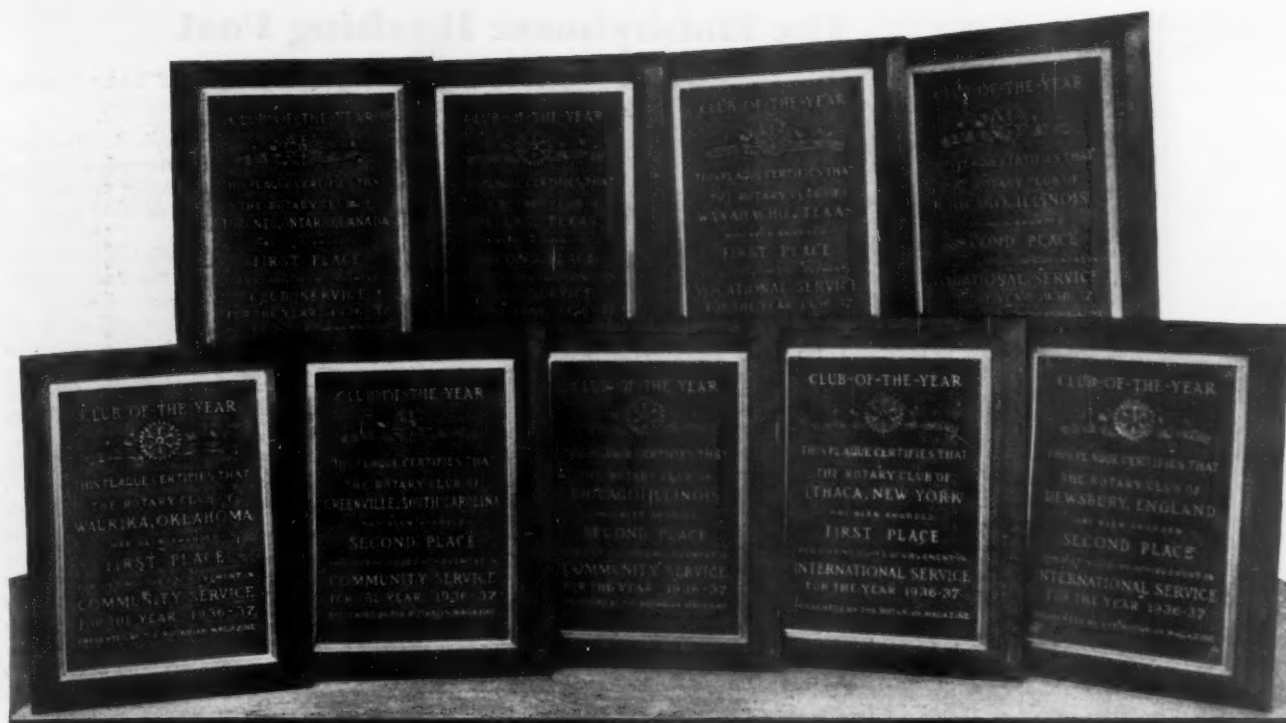 CLUB-OF-THE-YEAR
THIS PLAQUE CERTIFIES THAT
THE ROTARY CLUB OF
TORONTO, ONTARIO, CANADA
FIRST PLACE
CLUB SERVICE
FOR THE YEAR 1936-37
CLUB-OF-THE-YEAR
THIS PLAQUE CERTIFIES THAT
TEXAS
SECOND PLACE
SERVICE
CLUB-OF-THE-YEAR
THIS PLAQUE CERTIFIES THAT
THE ROTARY CLUB OF
WAXAHACHIE, TEXAS
HAS BEEN AWARDED
FIRST PLACE
VOCATIONAL SERVICE
FOR THE YEAR 1936-37
CLUB-OF-THE-YEAR
THIS PLAQUE CERTIFIES THAT
THE ROTARY CLUB OF
CHICAGO, ILLINOIS
SECOND PLACE
VOCATIONAL SERVICE
FOR THE YEAR 1936-37
CLUB-OF-THE-YEAR
THIS PLAQUE CERTIFIES THAT
THE ROTARY CLUB OF
WAURIKA, OKLAHOMA
HAS BEEN AWARDED
FIRST PLACE
COMMUNITY SERVICE
FOR THE YEAR 1936-37
PRESENTED BY THE ROTARIAN MAGAZINE
CLUB-OF-THE-YEAR
THIS PLAQUE CERTIFIES THAT
THE ROTARY CLUB OF
GREENVILLE, SOUTH CAROLINA
HAS BEEN AWARDED
SECOND PLACE
COMMUNITY SERVICE
FOR THE YEAR 1936-37
PRESENTED BY THE ROTARIAN MAGAZINE
CLUB-OF-THE-YEAR
THIS PLAQUE CERTIFIES THAT
THE ROTARY CLUB OF
CHICAGO, ILLINOIS
HAS BEEN AWARDED
SECOND PLACE
COMMUNITY SERVICE
FOR THE YEAR 1936-37
PRESENTED BY THE ROTARIAN MAGAZINE
CLUB-OF-THE-YEAR
THIS PLAQUE CERTIFIES THAT
THE ROTARY CLUB OF
ITHACA, NEW YORK
HAS BEEN AWARDED
FIRST PLACE
INTERNATIONAL SERVICE
FOR THE YEAR 1936-37
PRESENTED BY THE ROTARIAN MAGAZINE
CLUB-OF-THE-YEAR
THIS PLAQUE CERTIFIES THAT
THE ROTARY CLUB OF
DEWSBURY, ENGLAND
HAS BEEN AWARDED
SECOND PLACE
INTERNATIONAL SERVICE
FOR THE YEAR 1936-37
PRESENTED BY THE ROTARIAN MAGAZINE